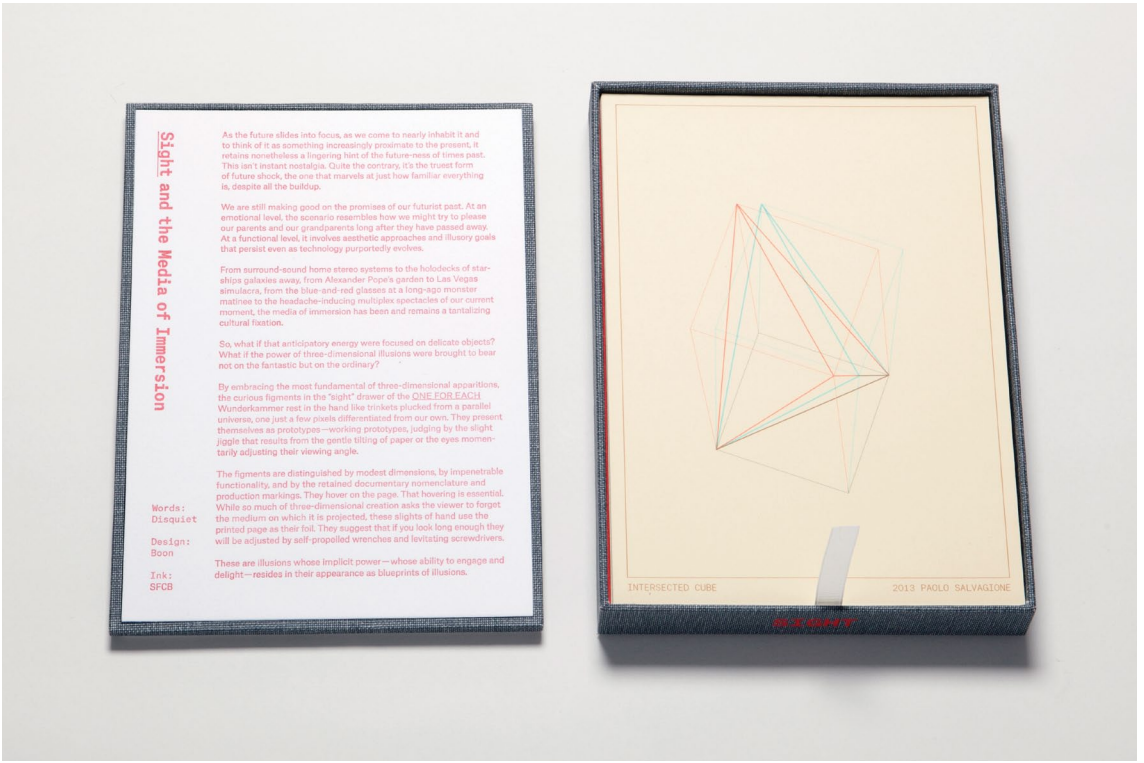 Sight and the Media of Immersion
As the future slides into focus, as we come to nearly inhabit it and
to think of it as something increasingly proximate to the present, it
retains nonetheless a lingering hint of the future-ness of times past.
This isn't instant nostalgia. Quite the contrary, it's the truest form
of future shock, the one that marvels at just how familiar everything
is, despite all the buildup.
We are still making good on the promises of our futurist past. At an
emotional level, the scenario resembles how we might try to please
our parents and our grandparents long after they have passed away.
At a functional level, it involves aesthetic approaches and illusory goals
that persist even as technology purportedly evolves.
From surround-sound home stereo systems to the holodecks of star-
ships galaxies away, from Alexander Pope's garden to Las Vegas
simulacra, from the blue-and-red glasses at a long-ago monster
matinee to the headache-inducing multiplex spectacles of our current
moment, the media of immersion has been and remains a tantalizing
cultural fixation.
So, what if that anticipatory energy were focused on delicate objects?
What if the power of three-dimensional illusions were brought to bear
not on the fantastic but on the ordinary?
By embracing the most fundamental of three-dimensional apparitions,
the curious figments in the "sight" drawer of the ONE FOR EACH
Wunderkammer rest in the hand like trinkets plucked from a parallel
universe, one just a few pixels differentiated from our own. They present
themselves as prototypes—working prototypes, judging by the slight
jiggle that results from the gentle tilting of paper or the eyes momen-
tarily adjusting their viewing angle.
The figments are distinguished by modest dimensions, by impenetrable
functionality, and by the retained documentary nomenclature and
production markings. They hover on the page. That hovering is essential.
While so much of three-dimensional creation asks the viewer to forget
the medium on which it is projected, these slights of hand use the
printed page as their foil. They suggest that if you look long enough they
will be adjusted by self-propelled wrenches and levitating screwdrivers.
These are illusions whose implicit power—whose ability to engage and
delight—resides in their appearance as blueprints of illusions.
Words:
Disquiet
Design:
Boon
Ink:
SFCB
INTERSECTED CUBE
2013 PAOLO SALVAGIONE
SIGHT